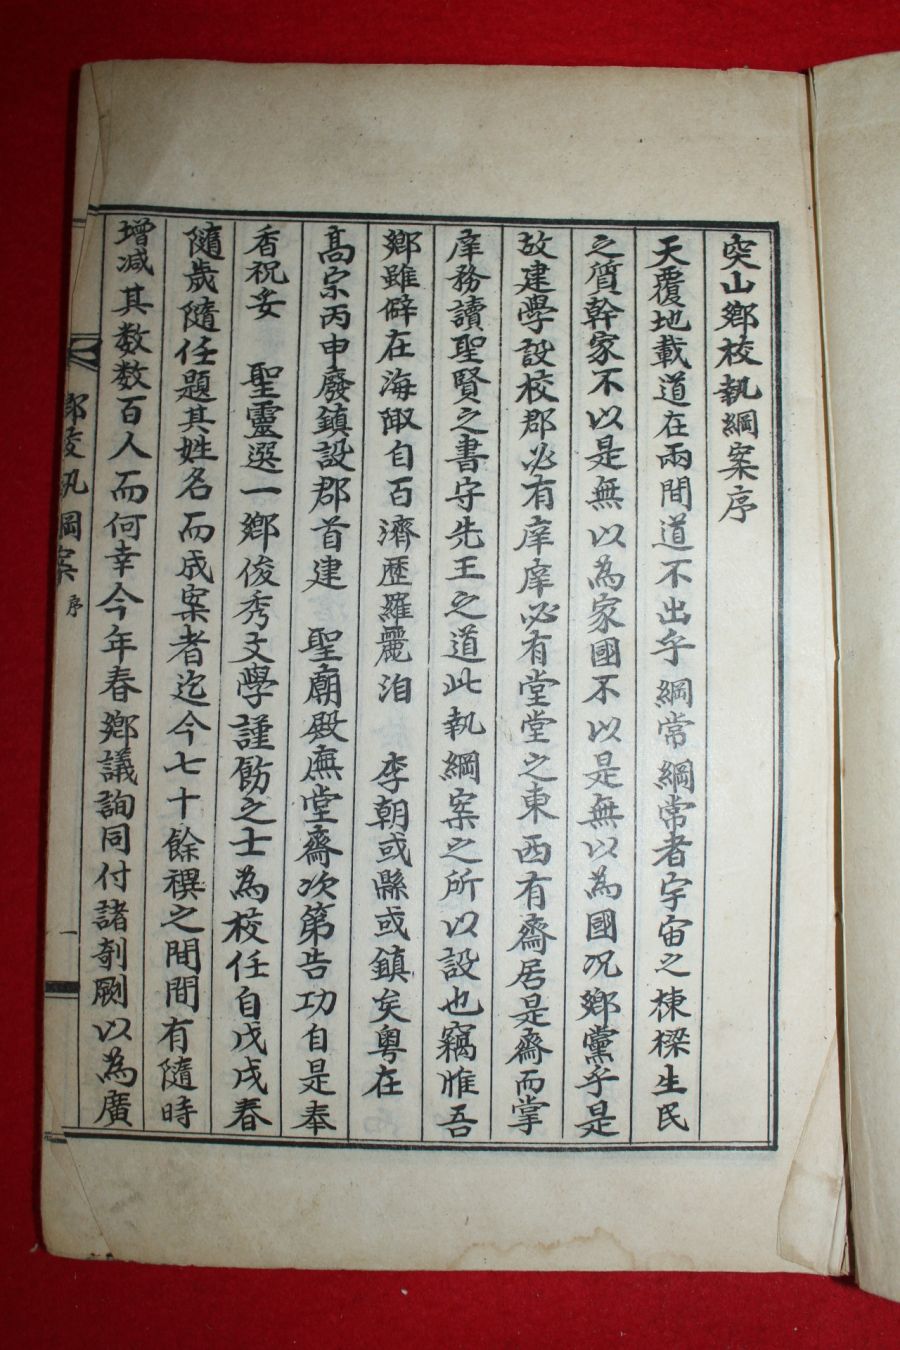 突山鄉校執綱案序
天覆地載道在兩間道不出乎綱常綱常者宇宙之棟樑生民
之質幹家不以是無以為家國不以是無以為國况鄉黨乎是
故建學設校郡必有庠庠必有堂堂之東西有齋居是齋而掌
庠務讀聖賢之書守先王之道此執綱案之所以設也竊惟吾
鄉雖僻在海陬自百濟歷羅麗洎 李朝或縣或鎮矣粤在
高宗丙申廢鎮設郡首建 聖廟殿廡堂齋次第告功自是奉
香祝妥 聖靈選一鄉俊秀文學謹飭之士為校任自戊戌春
隨歲隨任題其姓名而成案者迄今七十餘禩之間間有隨時
增减其数数百人而何幸今年春鄉議詢同付諸剞劂以為廣
鄉校執綱案 序 一